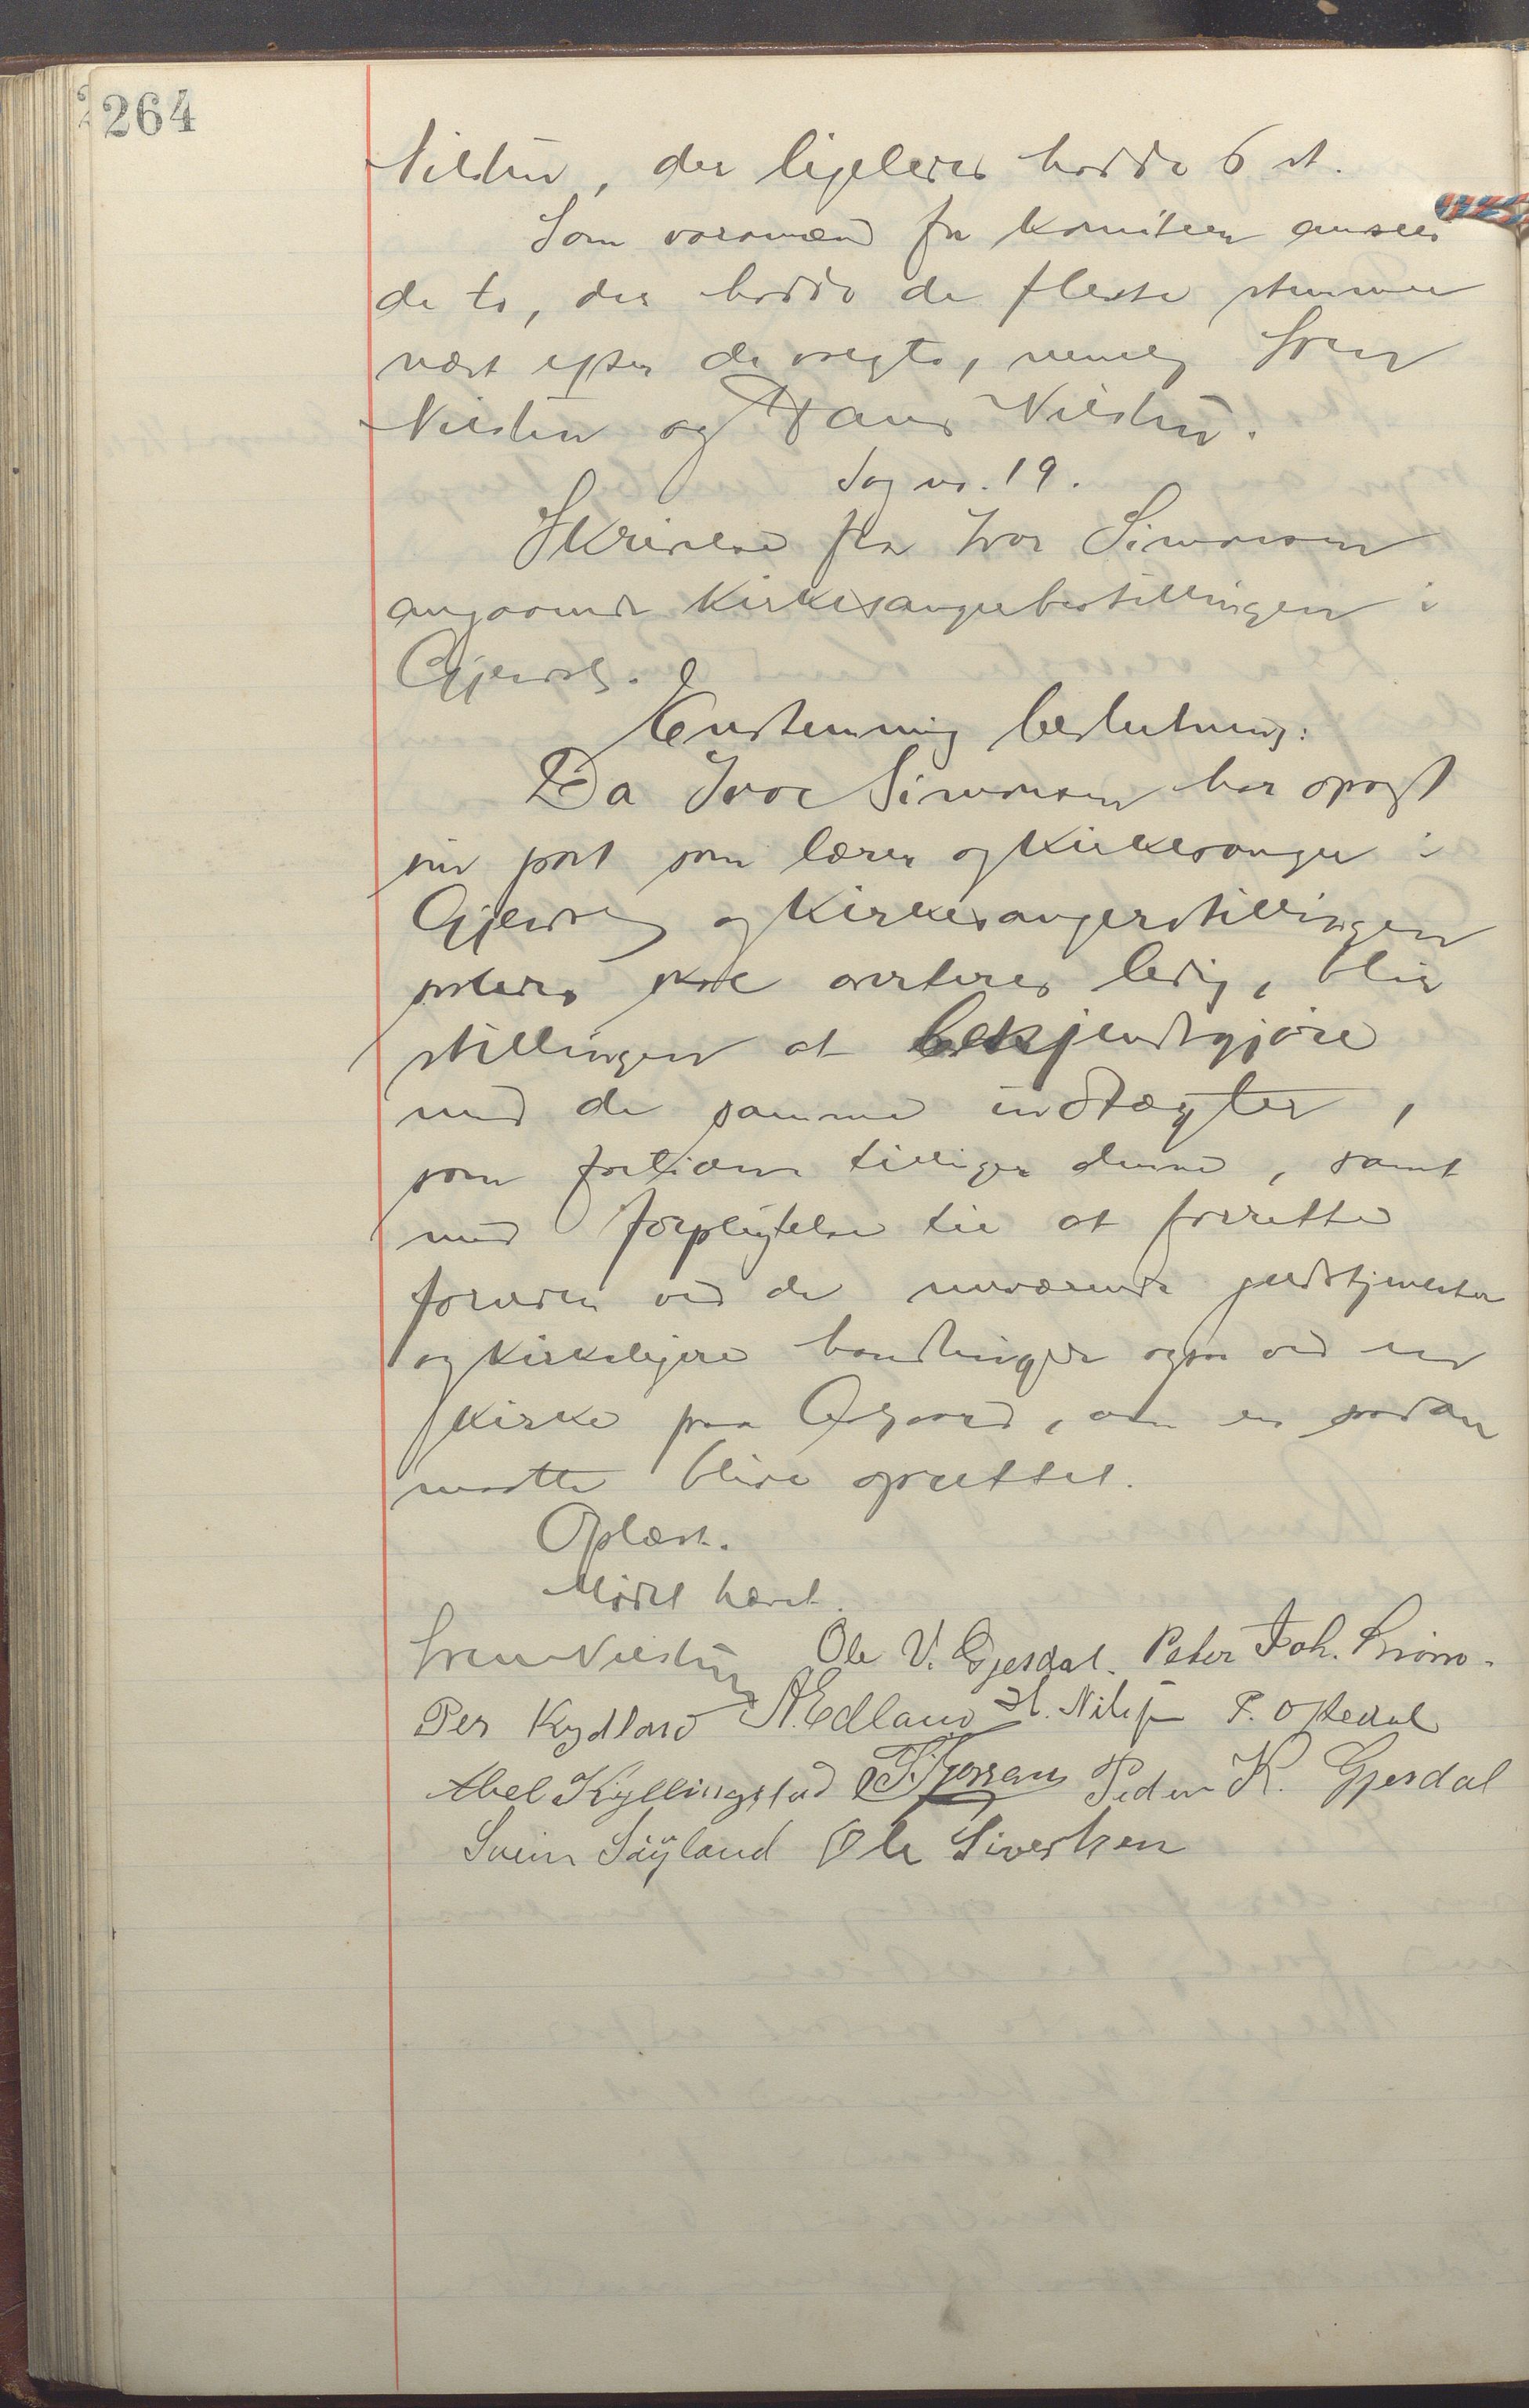 264
Nilsen, der ligeledes hadde 6 st.
Som varamænd for komiteen ansees
de to, der hadde de fleste stemmer
næst efter de valgte, nemlig Sven
Nilsen og Hans Nilsen.
Sag nr. 19.
Skrivelse fra Ivar Simonsen
angaaende kirkesangerbestillingen i
Gjesdal.
Enstemmig beslutning:
Da Ivar Simonsen har opsagt
sin post som lærer og kirkesanger i
Gjesdal og kirkesangerstillingen
saaledes skal averteres ledig, blir
stillingen at bekjendtgjøre
med de samme indtægter,
som tilligger denne, samt
med forpligtelse til at forrette
foruden ved de nuværende gudstjenester
og kirkeligere handlinger ogsaa ved en
kirke paa Aalgaard, om en saadan
maatte blive oprettet.
Oplæst.
Mødet hævet.
Sven Nilsen Ole V. Gjesdal. Peter Joh. Limo.
Per Kydland A. Edland H. Nilsen T. Oltedal
Abel Kyllingstad Peder K. Gjesdal
Svein Søyland Ole Sivertsen